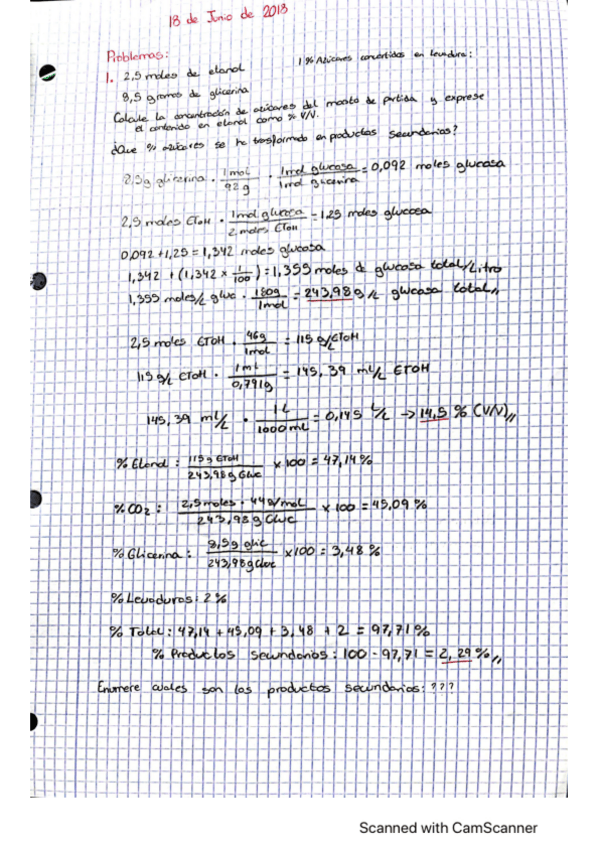 18 de Junio de 2018
Problemas:
1. 2,5 moles de etanol
1% Azúcares convertidos en levadura:
8,5 gramos de glicerina
Calcule la concentración de azúcares del mosto de partida y exprese
el contenido en etanol como % V/V.
¿Que % azúcares se ha trasformado en productos secundarios?
8,5g glicerina · 1mol/92g · 1mol glucosa/1mol glicerina = 0,092 moles glucosa
2,5 moles EToH · 1mol glucosa/2 moles EToH = 1,25 moles glucosa
0,092 + 1,25 = 1,342 moles glucosa
1,342 + (1,342 x 1/100) = 1,355 moles d glucosa total/Litro
1,355 moles/L gluc · 180g/1mol = 243,98 g/L glucosa total
2,5 moles EToH · 46g/1mol = 115 g/EToH
115 g/L EToH · 1ml/0,791g = 145,39 ml/L EToH
145,39 ml/L · 1L/1000mL = 0,145 L/L → 14,5 % (V/V)
% Etanol: 115g EToH/243,98g Gluc x 100 = 47,14%
% CO2: 2,5moles · 44g/mol/243,98g Gluc x 100 = 45,09 %
% Glicerina: 8,5g glic/243,98g Gluc x100 = 3,48 %
% Levaduras: 2%
% Total: 47,14 + 45,09 + 3,48 + 2 = 97,71%
% Productos secundarios: 100 - 97,71 = 2,29%
Enumere cuales son los productos secundarios: ???
Scanned with CamScanner